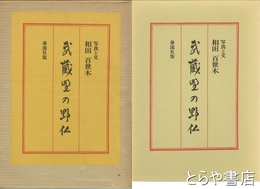 写真と文
相田 百世木
武蔵里の野仏
新流社版
写真と文
相田 百世木
武蔵里の野仏
新流社版
とらや書店